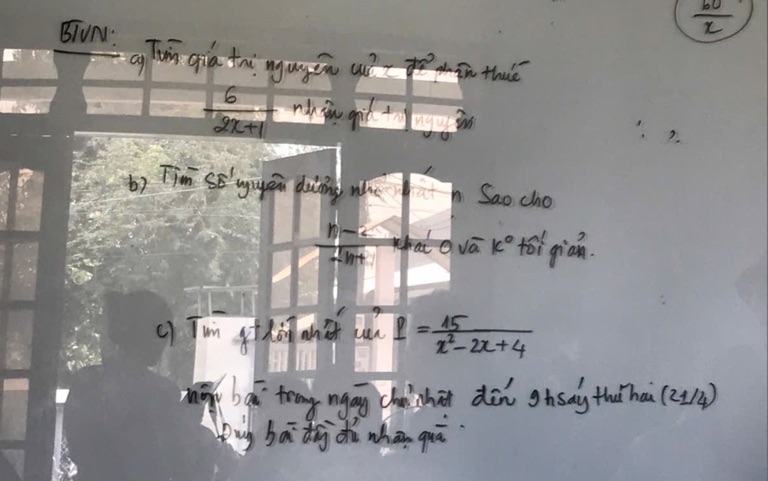 60
x
BTVN:
a) Tìm giá trị nguyên của x để phân thức
6
2x+1
nhận giá trị nguyên
b) Tìm số nguyên dương nhỏ nhất n sao cho
n-
khác 0 và k° tối giản.
c) Tìm gt lớn nhất của P = 15
x²-2x+4
nộp bài trong ngày chủ nhật đến 9h sáy thứ hai (21/4)
Đúng bài đầy đủ nhận quà.